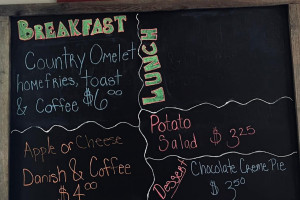 BREAKFAST
Country Omelet
homefries, toast
& Coffee $6.00
Apple or Cheese
Danish & Coffee
$4.00
LUNCH
Potato
Salad $3.25
Dessert
Chocolate Creme Pie
$3.50